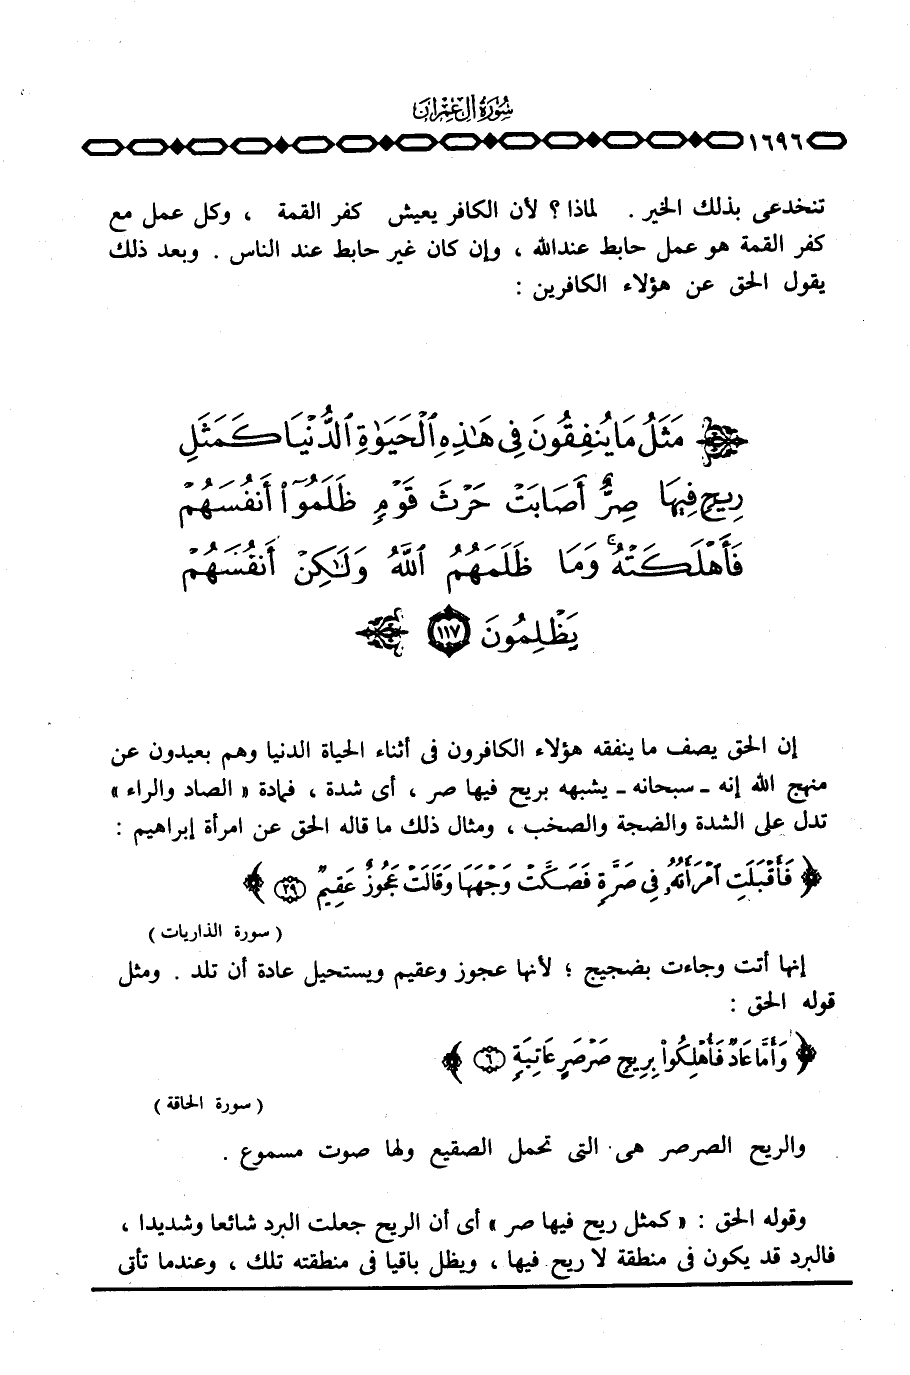 سُورَةُ آلِ عِمْرَانَ
١٦٩٦
تنخدعى بذلك الخير . لماذا ؟ لأن الكافر يعيش كفر القمة ، وكل عمل مع
كفر القمة هو عمل حابط عندالله ، وإن كان غير حابط عند الناس . وبعد ذلك
يقول الحق عن هؤلاء الكافرين :
مَثَلُ مَا يُنفِقُونَ فِى هَٰذِهِ ٱلْحَيَوٰةِ ٱلدُّنْيَا كَمَثَلِ
رِيحٍ فِيهَا صِرٌّ أَصَابَتْ حَرْثَ قَوْمٍ ظَلَمُوٓا۟ أَنفُسَهُمْ
فَأَهْلَكَتْهُ ۚ وَمَا ظَلَمَهُمُ ٱللَّهُ وَلَٰكِنْ أَنفُسَهُمْ
يَظْلِمُونَ ١١٧
إن الحق يصف ما ينفقه هؤلاء الكافرون فى أثناء الحياة الدنيا وهم بعيدون عن
منهج الله إنه ـ سبحانه ـ يشبهه بريح فيها صر ، أى شدة ، فمادة « الصاد والراء »
تدل على الشدة والضجة والصخب ، ومثال ذلك ما قاله الحق عن امرأة إبراهيم :
﴿ فَأَقْبَلَتِ ٱمْرَأَتُهُۥ فِى صَرَّةٍ فَصَكَّتْ وَجْهَهَا وَقَالَتْ عَجُوزٌ عَقِيمٌ ٢٩ ﴾
( سورة الذاريات )
إنها أتت وجاءت بضجيج ؛ لأنها عجوز وعقيم ويستحيل عادة أن تلد . ومثل
قوله الحق :
﴿ وَأَمَّا عَادٌ فَأُهْلِكُوا۟ بِرِيحٍ صَرْصَرٍ عَاتِيَةٍ ٦ ﴾
( سورة الحاقة )
والريح الصرصر هى التى تحمل الصقيع ولها صوت مسموع .
وقوله الحق : « كمثل ريح فيها صر » أى أن الريح جعلت البرد شائعا وشديدا ،
فالبرد قد يكون فى منطقة لا ريح فيها ، ويظل باقيا فى منطقته تلك ، وعندما تأتى